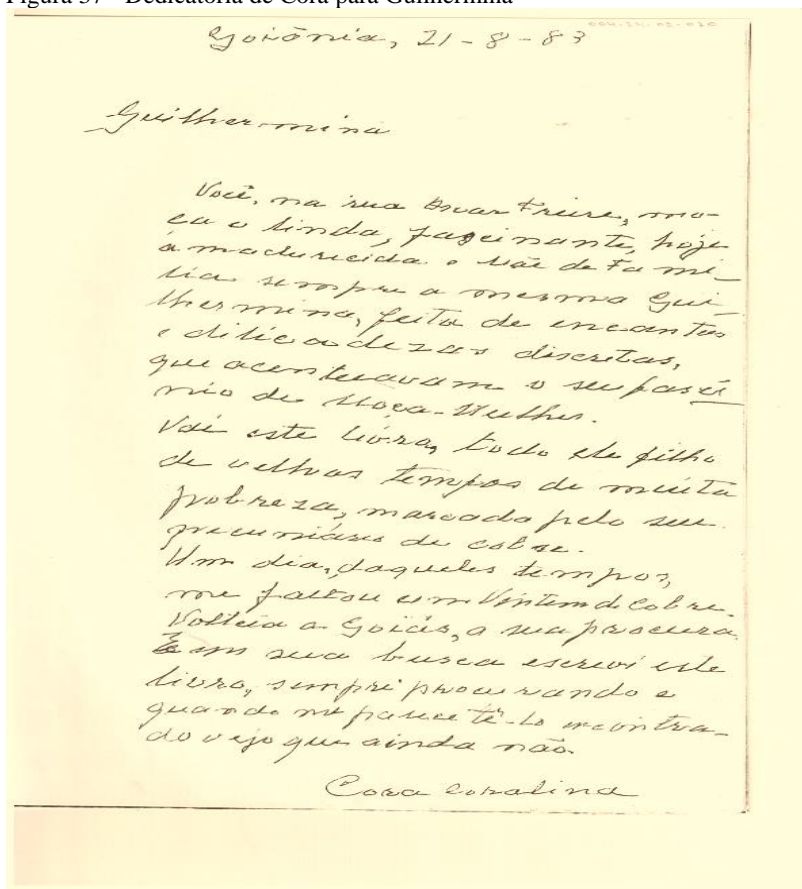 Figura 37 - Dedicatória de Cora para Guilhermina
004-24-02-020
Goiânia, 21-8-83
Guilhermina
Você, na rua Oscar Freire, mo-
ça e linda, fascinante, hoje
amadurecida e Mãe de Famí-
lia sempre a mesma Gui-
lhermina, feita de encantos
e dilicadezas discretas,
que acentuavam o seu fascí
nio de Moça-Mulher.
Vai este livro, todo ele filho
de velhos tempos de muita
pobreza, marcada pelo seu
pecuniário de cobre.
Um dia, daqueles tempos,
me faltou um Vintem de Cobre.
Voltei a Goiás, a sua procura
E em sua busca escrevi este
livro, sempre procurando e
quando me parece tê-lo encontra-
do vejo que ainda não.
Cora Coralina